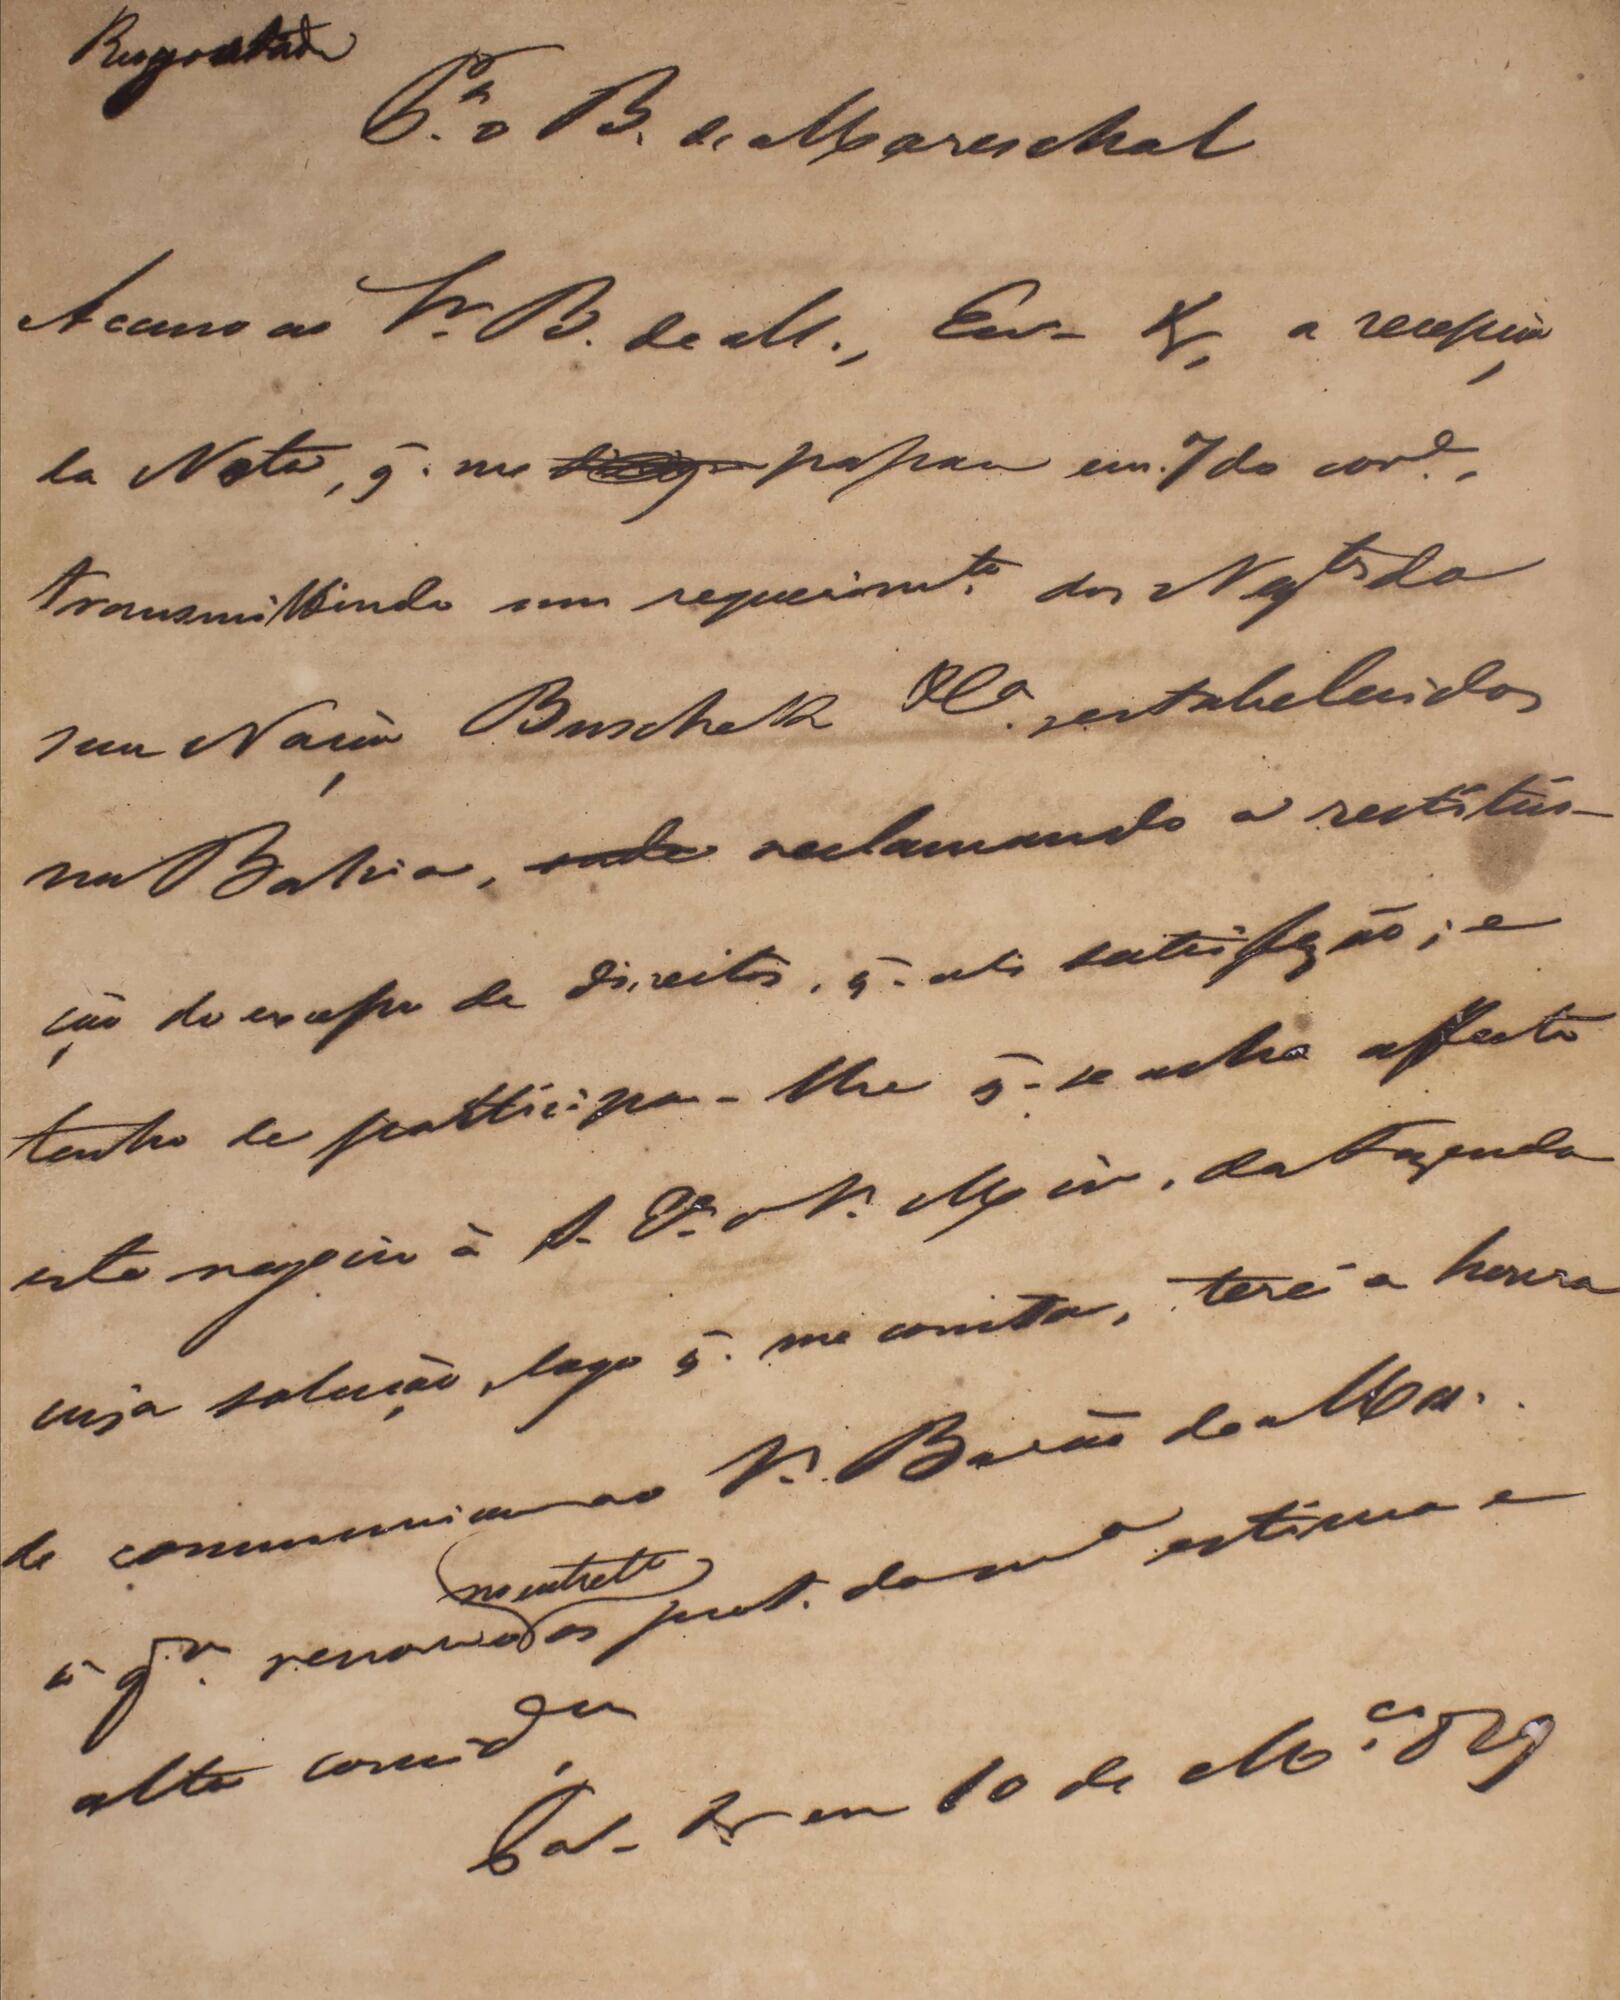 P.ª o B. de Mareschal
Accuso ao Sr. B. de M., Env. &, a recepção
da Nota, q. me passou em 7 do corr.e,
transmittindo um requerim.to dos Neg.tes da
sua Nação Buschek &C.ª estabelecidos
na Bahia, onde reclamando a restitui-
ção do excesso de direitos, q. ali satisfizerão; e
tenho de participar-lhe q. se acha affecto
este negocio á S. Ex.ª o Sr. Min. da Fazenda
cuja solução, logo q. me conste, terei a honra
de communicar ao Sr. Barão de Mar.
no entretto
á q.m renovo os prot. da m.ª estima e
alta consid.am
Pal. & em 10 de M.ço 829